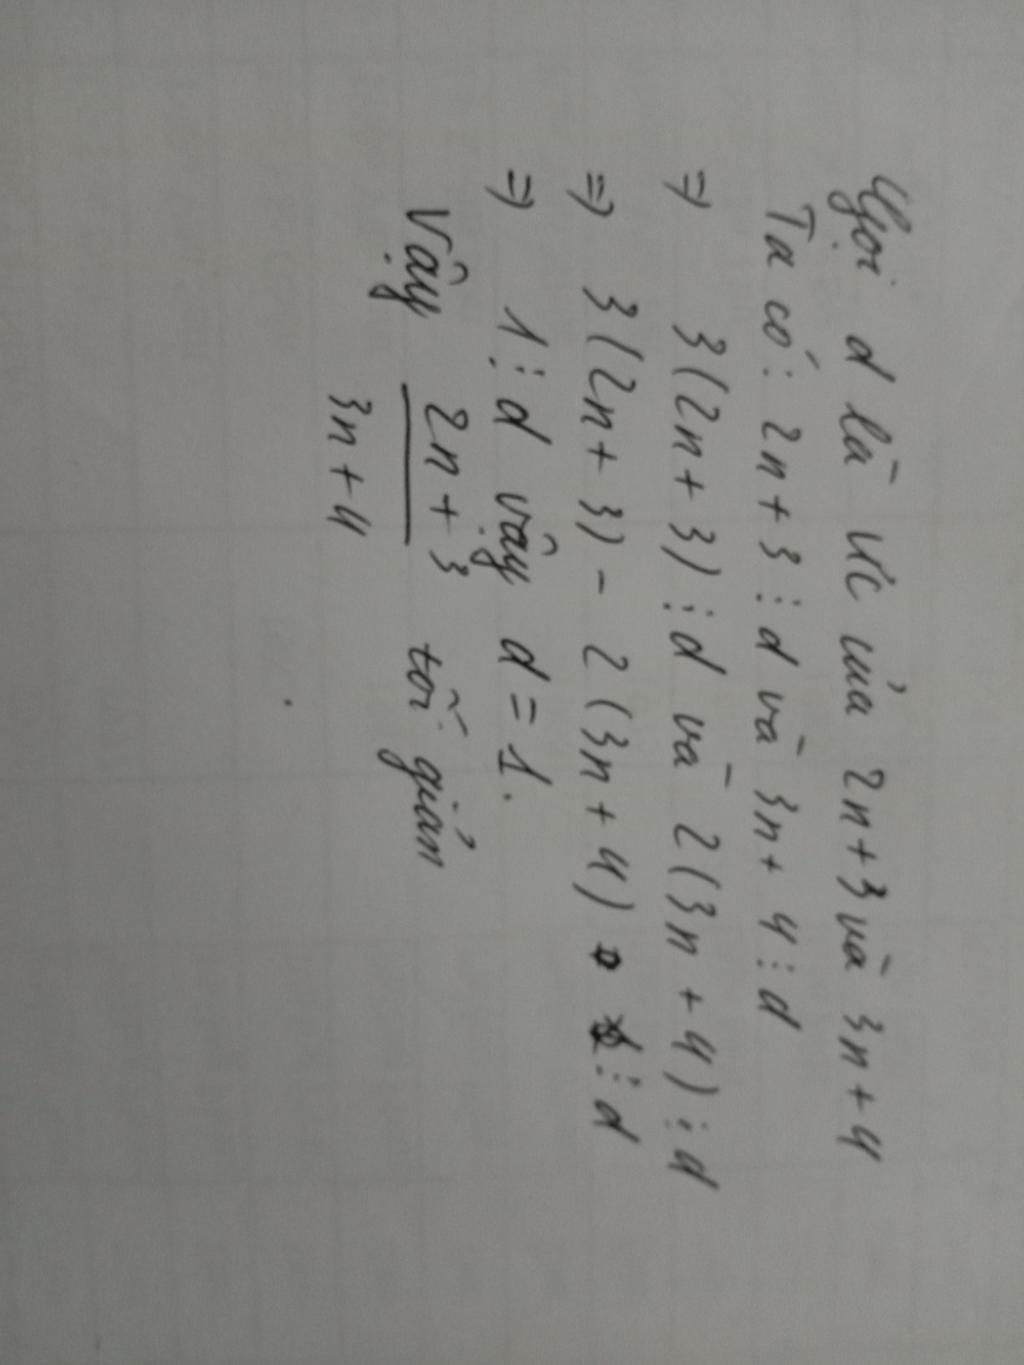 Gọi d là ƯC của 2n+3 và 3n+4
Ta có: 2n+3 ⋮ d và 3n+4 ⋮ d
=> 3(2n+3) ⋮ d và 2(3n+4) ⋮ d
=> 3(2n+3) - 2(3n+4) ⋮ d
=> 1 ⋮ d vậy d = 1.
Vậy 2n+3 tối giản
3n+4